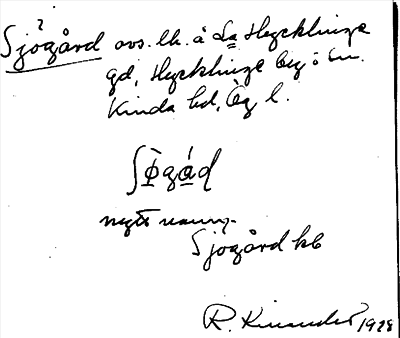 Sjögård avs. lh. å La Hycklinge
gd, Hycklinge by i Hm.
Kinda hd, Ög l.
ʃø̀gád
nytt namn.
Sjögård kb
R. Kinander 1928